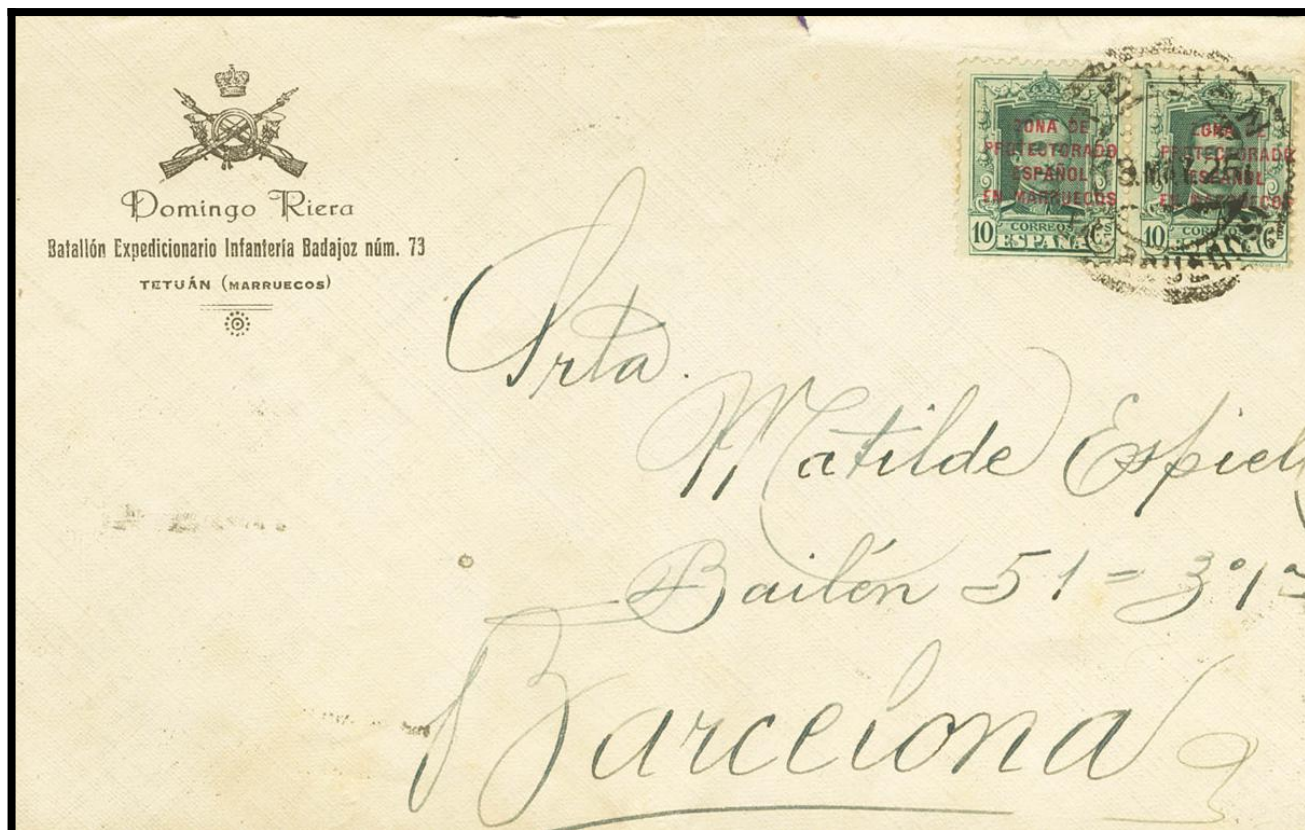 Domingo Riera
Batallón Expedicionario Infantería Badajoz núm. 73
TETUÁN (MARRUECOS)
ZONA DE
PROTECTORADO
ESPAÑOL
EN MARRUECOS
CORREOS
10 ESPAÑA
ZONA DE
PROTECTORADO
ESPAÑOL
EN MARRUECOS
CORREOS
10 ESPAÑA
Srta.
Matilde
Bailén 51 =
Barcelona